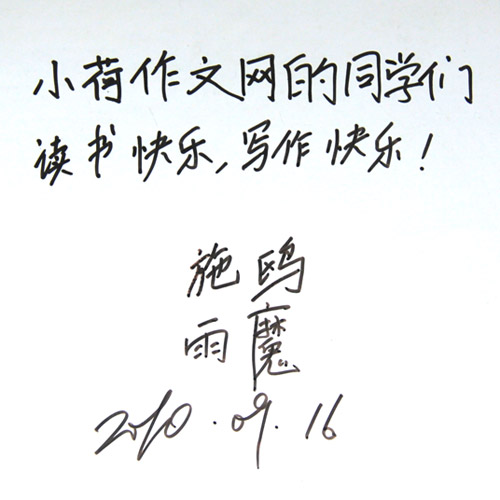 小荷作文网的同学们
读书快乐,写作快乐!
施鸥
雨魔
2010.09.16